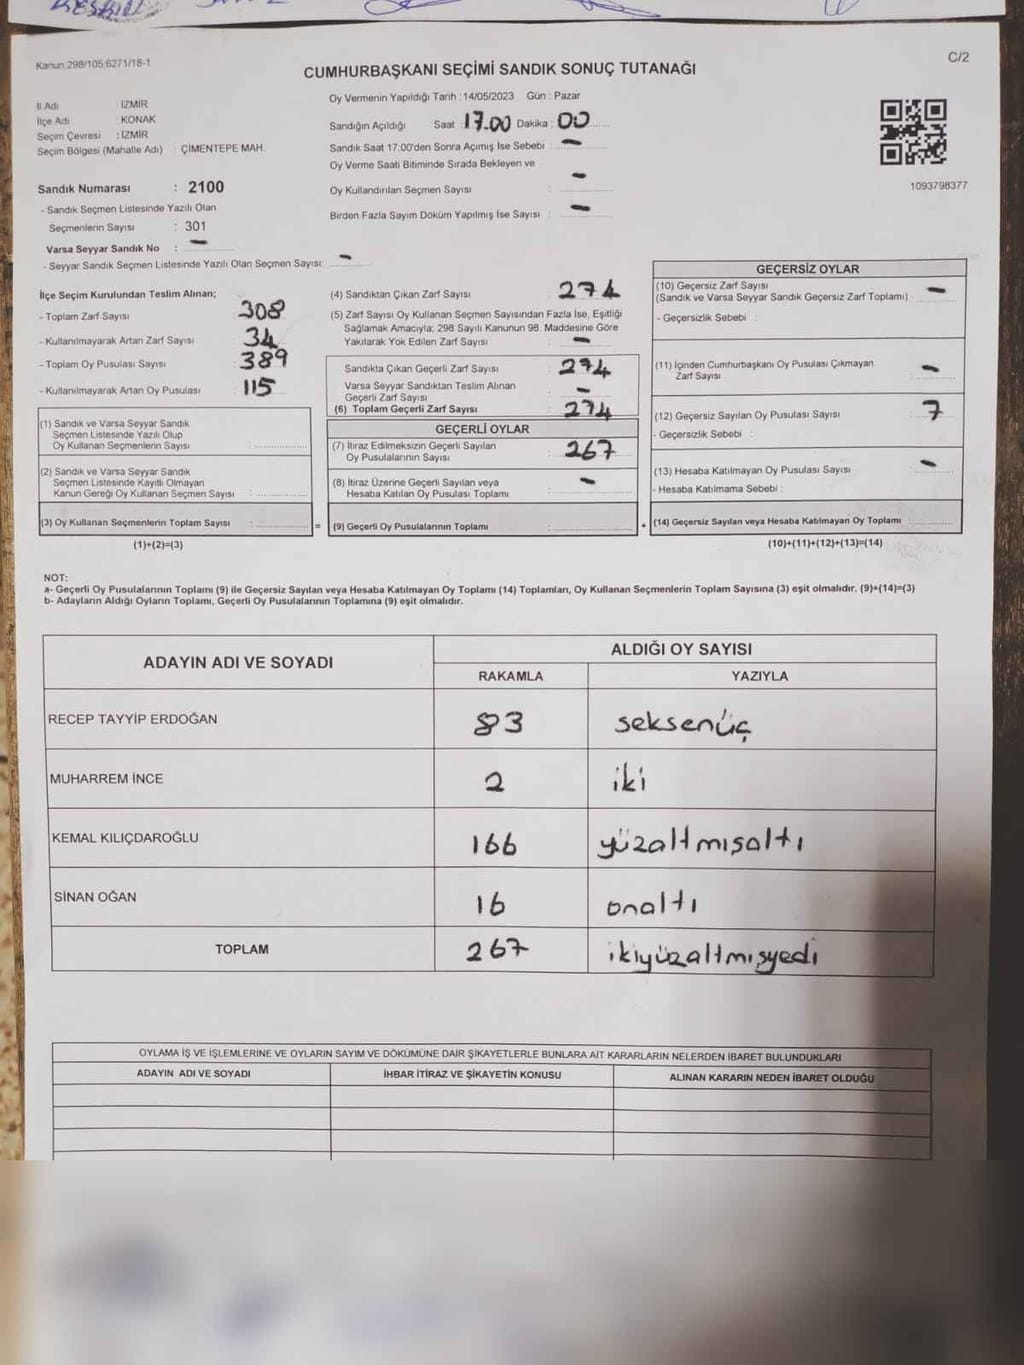 Kanun 298/105;6271/18-1
C/2
CUMHURBAŞKANI SEÇİMİ SANDIK SONUÇ TUTANAĞI
İl Adı : İZMİR
İlçe Adı : KONAK
Seçim Çevresi : İZMİR
Seçim Bölgesi (Mahalle Adı) : ÇİMENTEPE MAH.
Sandık Numarası : 2100
- Sandık Seçmen Listesinde Yazılı Olan
Seçmenlerin Sayısı : 301
Varsa Seyyar Sandık No : -
- Seyyar Sandık Seçmen Listesinde Yazılı Olan Seçmen Sayısı: -
Oy Vermenin Yapıldığı Tarih : 14/05/2023 Gün : Pazar
Sandığın Açıldığı Saat : 17.00 Dakika : 00
Sandık Saat 17:00'den Sonra Açımış İse Sebebi : -
Oy Verme Saati Bitiminde Sırada Bekleyen ve
Oy Kullandırılan Seçmen Sayısı : -
Birden Fazla Sayım Döküm Yapılmış İse Sayısı : -
1093798377
İlçe Seçim Kurulundan Teslim Alınan;
- Toplam Zarf Sayısı : 308
- Kullanılmayarak Artan Zarf Sayısı : 34
- Toplam Oy Pusulası Sayısı : 389
- Kullanılmayarak Artan Oy Pusulası : 115
(1) Sandık ve Varsa Seyyar Sandık
Seçmen Listesinde Yazılı Olup
Oy Kullanan Seçmenlerin Sayısı :
(2) Sandık ve Varsa Seyyar Sandık
Seçmen Listesinde Kayıtlı Olmayan
Kanun Gereği Oy Kullanan Seçmen Sayısı :
(3) Oy Kullanan Seçmenlerin Toplam Sayısı :
(1)+(2)=(3)
(4) Sandıktan Çıkan Zarf Sayısı : 274
(5) Zarf Sayısı Oy Kullanan Seçmen Sayısından Fazla İse, Eşitliği
Sağlamak Amacıyla; 298 Sayılı Kanunun 98. Maddesine Göre
Yakılarak Yok Edilen Zarf Sayısı : -
Sandıkta Çıkan Geçerli Zarf Sayısı : 274
Varsa Seyyar Sandıktan Teslim Alınan
Geçerli Zarf Sayısı : -
(6) Toplam Geçerli Zarf Sayısı : 274
GEÇERLİ OYLAR
(7) İtiraz Edilmeksizin Geçerli Sayılan
Oy Pusulalarının Sayısı : 267
(8) İtiraz Üzerine Geçerli Sayılan veya
Hesaba Katılan Oy Pusulası Toplamı : -
= (9) Geçerli Oy Pusulalarının Toplamı :
GEÇERSİZ OYLAR
(10) Geçersiz Zarf Sayısı
(Sandık ve Varsa Seyyar Sandık Geçersiz Zarf Toplamı) : -
- Geçersizlik Sebebi :
(11) İçinden Cumhurbaşkanı Oy Pusulası Çıkmayan
Zarf Sayısı : -
(12) Geçersiz Sayılan Oy Pusulası Sayısı : 7
- Geçersizlik Sebebi :
(13) Hesaba Katılmayan Oy Pusulası Sayısı : -
- Hesaba Katılmama Sebebi :
+ (14) Geçersiz Sayılan veya Hesaba Katılmayan Oy Toplamı :
(10)+(11)+(12)+(13)=(14)
NOT:
a- Geçerli Oy Pusulalarının Toplamı (9) ile Geçersiz Sayılan veya Hesaba Katılmayan Oy Toplamı (14) Toplamları, Oy Kullanan Seçmenlerin Toplam Sayısına (3) eşit olmalıdır. (9)+(14)=(3)
b- Adayların Aldığı Oyların Toplamı, Geçerli Oy Pusulalarının Toplamına (9) eşit olmalıdır.
ADAYIN ADI VE SOYADI
ALDIĞI OY SAYISI
RAKAMLA YAZIYLA
RECEP TAYYİP ERDOĞAN 83 seksenüç
MUHARREM İNCE 2 iki
KEMAL KILIÇDAROĞLU 166 yüzaltmışaltı
SİNAN OĞAN 16 onaltı
TOPLAM 267 ikiyüzaltmışyedi
OYLAMA İŞ VE İŞLEMLERİNE VE OYLARIN SAYIM VE DÖKÜMÜNE DAİR ŞİKAYETLERLE BUNLARA AİT KARARLARIN NELERDEN İBARET BULUNDUKLARI
ADAYIN ADI VE SOYADI İHBAR İTİRAZ VE ŞİKAYETİN KONUSU ALINAN KARARIN NEDEN İBARET OLDUĞU